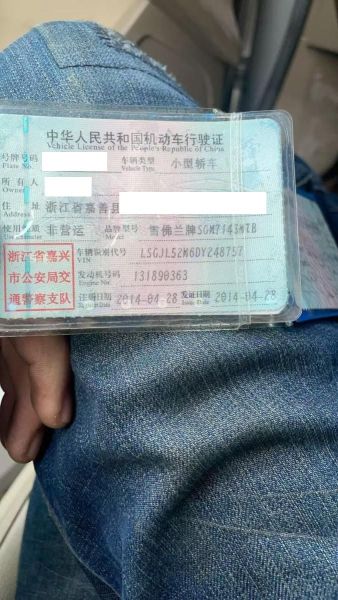 中华人民共和国机动车行驶证
Vehicle License of the People's Republic of China
号牌号码 车辆类型 小型轿车
Plate No. Vehicle Type
所有人
Owner
住址 浙江省嘉善县
Address
使用性质 非营运 品牌型号 雪佛兰牌SGM7143MTB
浙江省嘉兴 车辆识别代号 LSGJL52M6DY248757
VIN
市公安局交 发动机号码 131890363
Engine No.
通警察支队 注册日期 2014-04-28 发证日期 2014-04-28
Register Date Issue Date